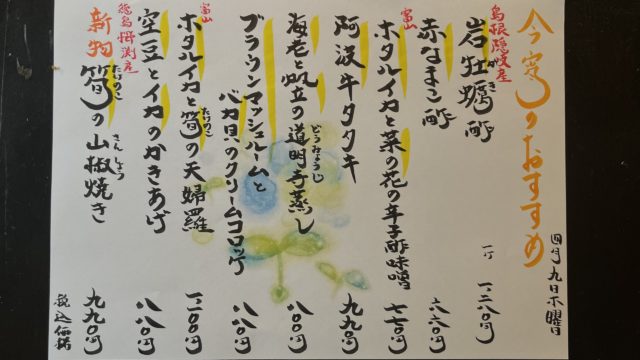 今宵のおすすめ
四月九日木曜
島根隠岐産
岩牡蠣酢
がき
一ケ
一二八〇円
赤なまこ酢
六六〇円
富山
ホタルイカと菜の花の辛子酢味噌
七七〇円
阿波牛タタキ
九九〇円
海老と帆立の道明寺蒸し
どうみょうじ
八〇〇円
ブラウンマッシュルームと
バカ貝のクリームコロッケ
八八〇円
富山
ホタルイカと筍の天婦羅
たけのこ
空豆とイカのかきあげ
八八〇円
徳島櫛渕産
新物筍の山椒焼き
たけのこ
さんしょう
九九〇円
税込価格